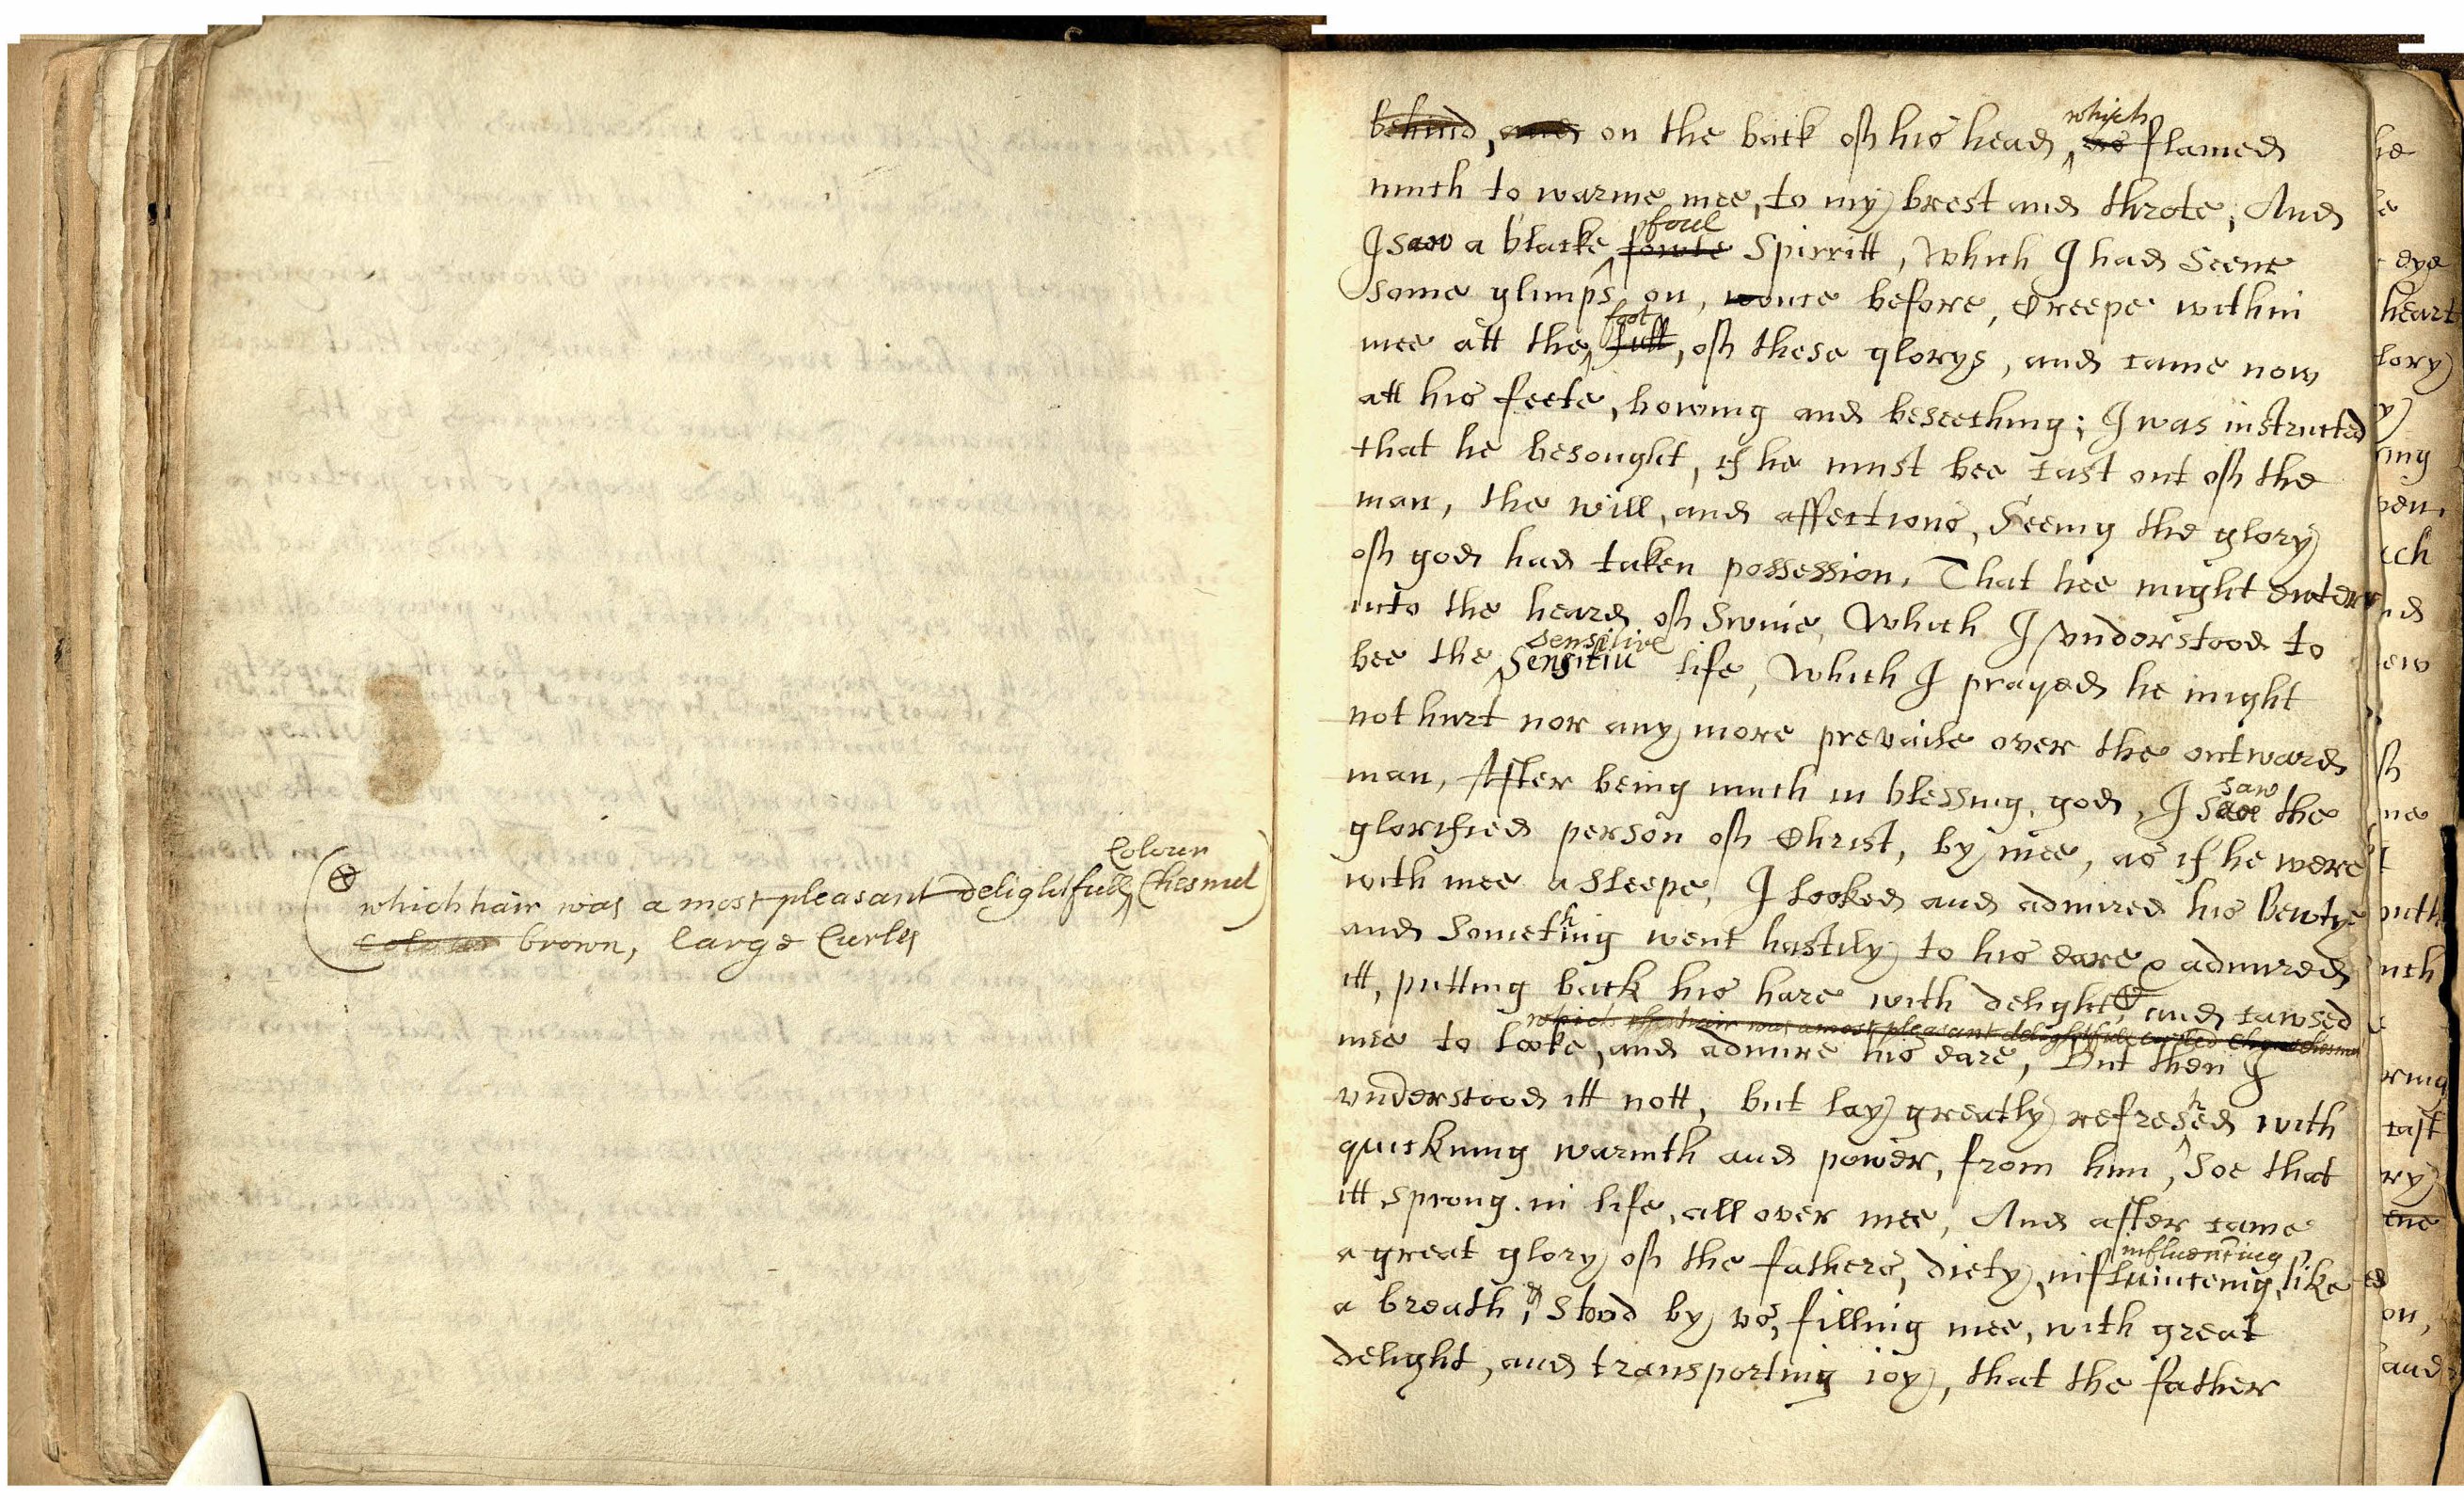 Colour
⊗ which hair was a most pleasant delightfull Chesnut
colour brown, large Curles
behind, and on the back off his head, which as flamed
much to warme mee, to my brest and throte, And
I saw a blacke foul fowle Spirritt, Which I had Seene
some glimps on, wonce before, Creepe within
mee att the foot futt, off these glorys, and came now
att his feete, bowing and beseeching; I was instructed
that he besought, if he must bee cast out off the
man, the will, and affections, Seeing the glory
off god had taken possession, That hee might enter
into the heard off Swine, Which I vnderstood to
bee the Sensitive Sensitiu life, Which I prayed he might
not hurt nor any more prevaile over the outward
man, After being much in blessing, god, I saw the
glorified person off Christ, by mee, as if he were
with mee a sleepe, I looked and admired his Bewtye
and something went hastily to his eare & admired
itt, putting back his hare with delight ⊗, and cawsed
which his hair was a most pleasant delightfull curled
mee to looke, and admire his eare, But then I
vnderstood itt nott, but lay greatly refreshed with
quickning warmth and power, from him, Soe that
itt sprong in life, all over mee, And after came
a great glory off the fathers, diety, influencing influincenig, like
a breath, & stood by vs, filling mee, with great
delight, and transporting ioy, that the father
he
eye
heart
lory
ing
ven,
ich
nd
ew
off
me
uth
uch
ring
cast
ry
ene
ed
on,
and